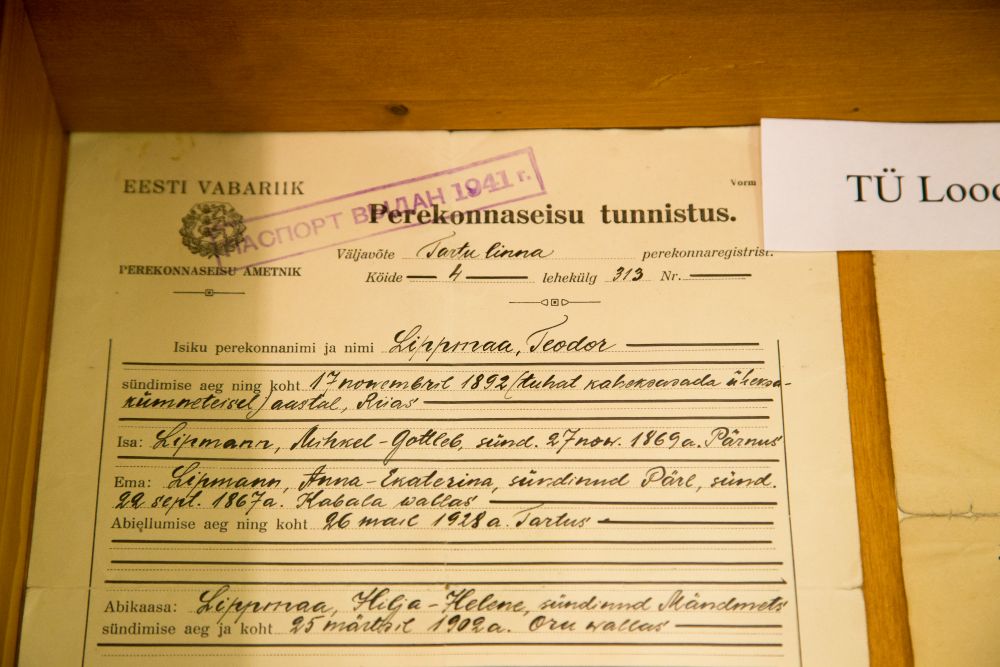 EESTI VABARIIK
PEREKONNASEISU AMETNIK
ПАСПОРТ ВЫДАН 1941 г.
Vorm
Perekonnaseisu tunnistus.
Väljavõte Tartu linna perekonnaregistrist.
Köide — 4 — lehekülg 313 Nr. —
TÜ Lood
Isiku perekonnanimi ja nimi Lippmaa, Teodor —
sündimise aeg ning koht 17 novembril 1892 (tuhat kaheksasada üheksa-
kümneteisel) aastal, Riias —
Isa: Lipmann, Mihkel-Gottleb, sünd. 27 nov. 1869 a. Pärnus
Ema: Lipmann, Anna-Ekaterina, sündinud Pärl, sünd.
22 sept. 1867 a. Kabala wallas —
Abiellumise aeg ning koht 26 mail 1928 a. Tartus —
Abikaasa: Lippmaa, Hilja-Helene, sündinud Mändmets
sündimise aeg ja koht 25 märtsil 1902 a. Oru wallas —